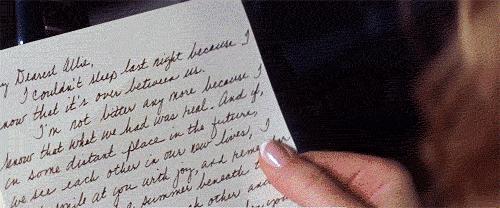 y Dearest Allie,
I couldn't sleep last night because I
know that it's over between us.
I'm not bitter any more because I
know that what we had was real. And if,
in some distant place in the future,
we see each other in our new lives, I
smile at you with joy and
a summer beneath
each other and